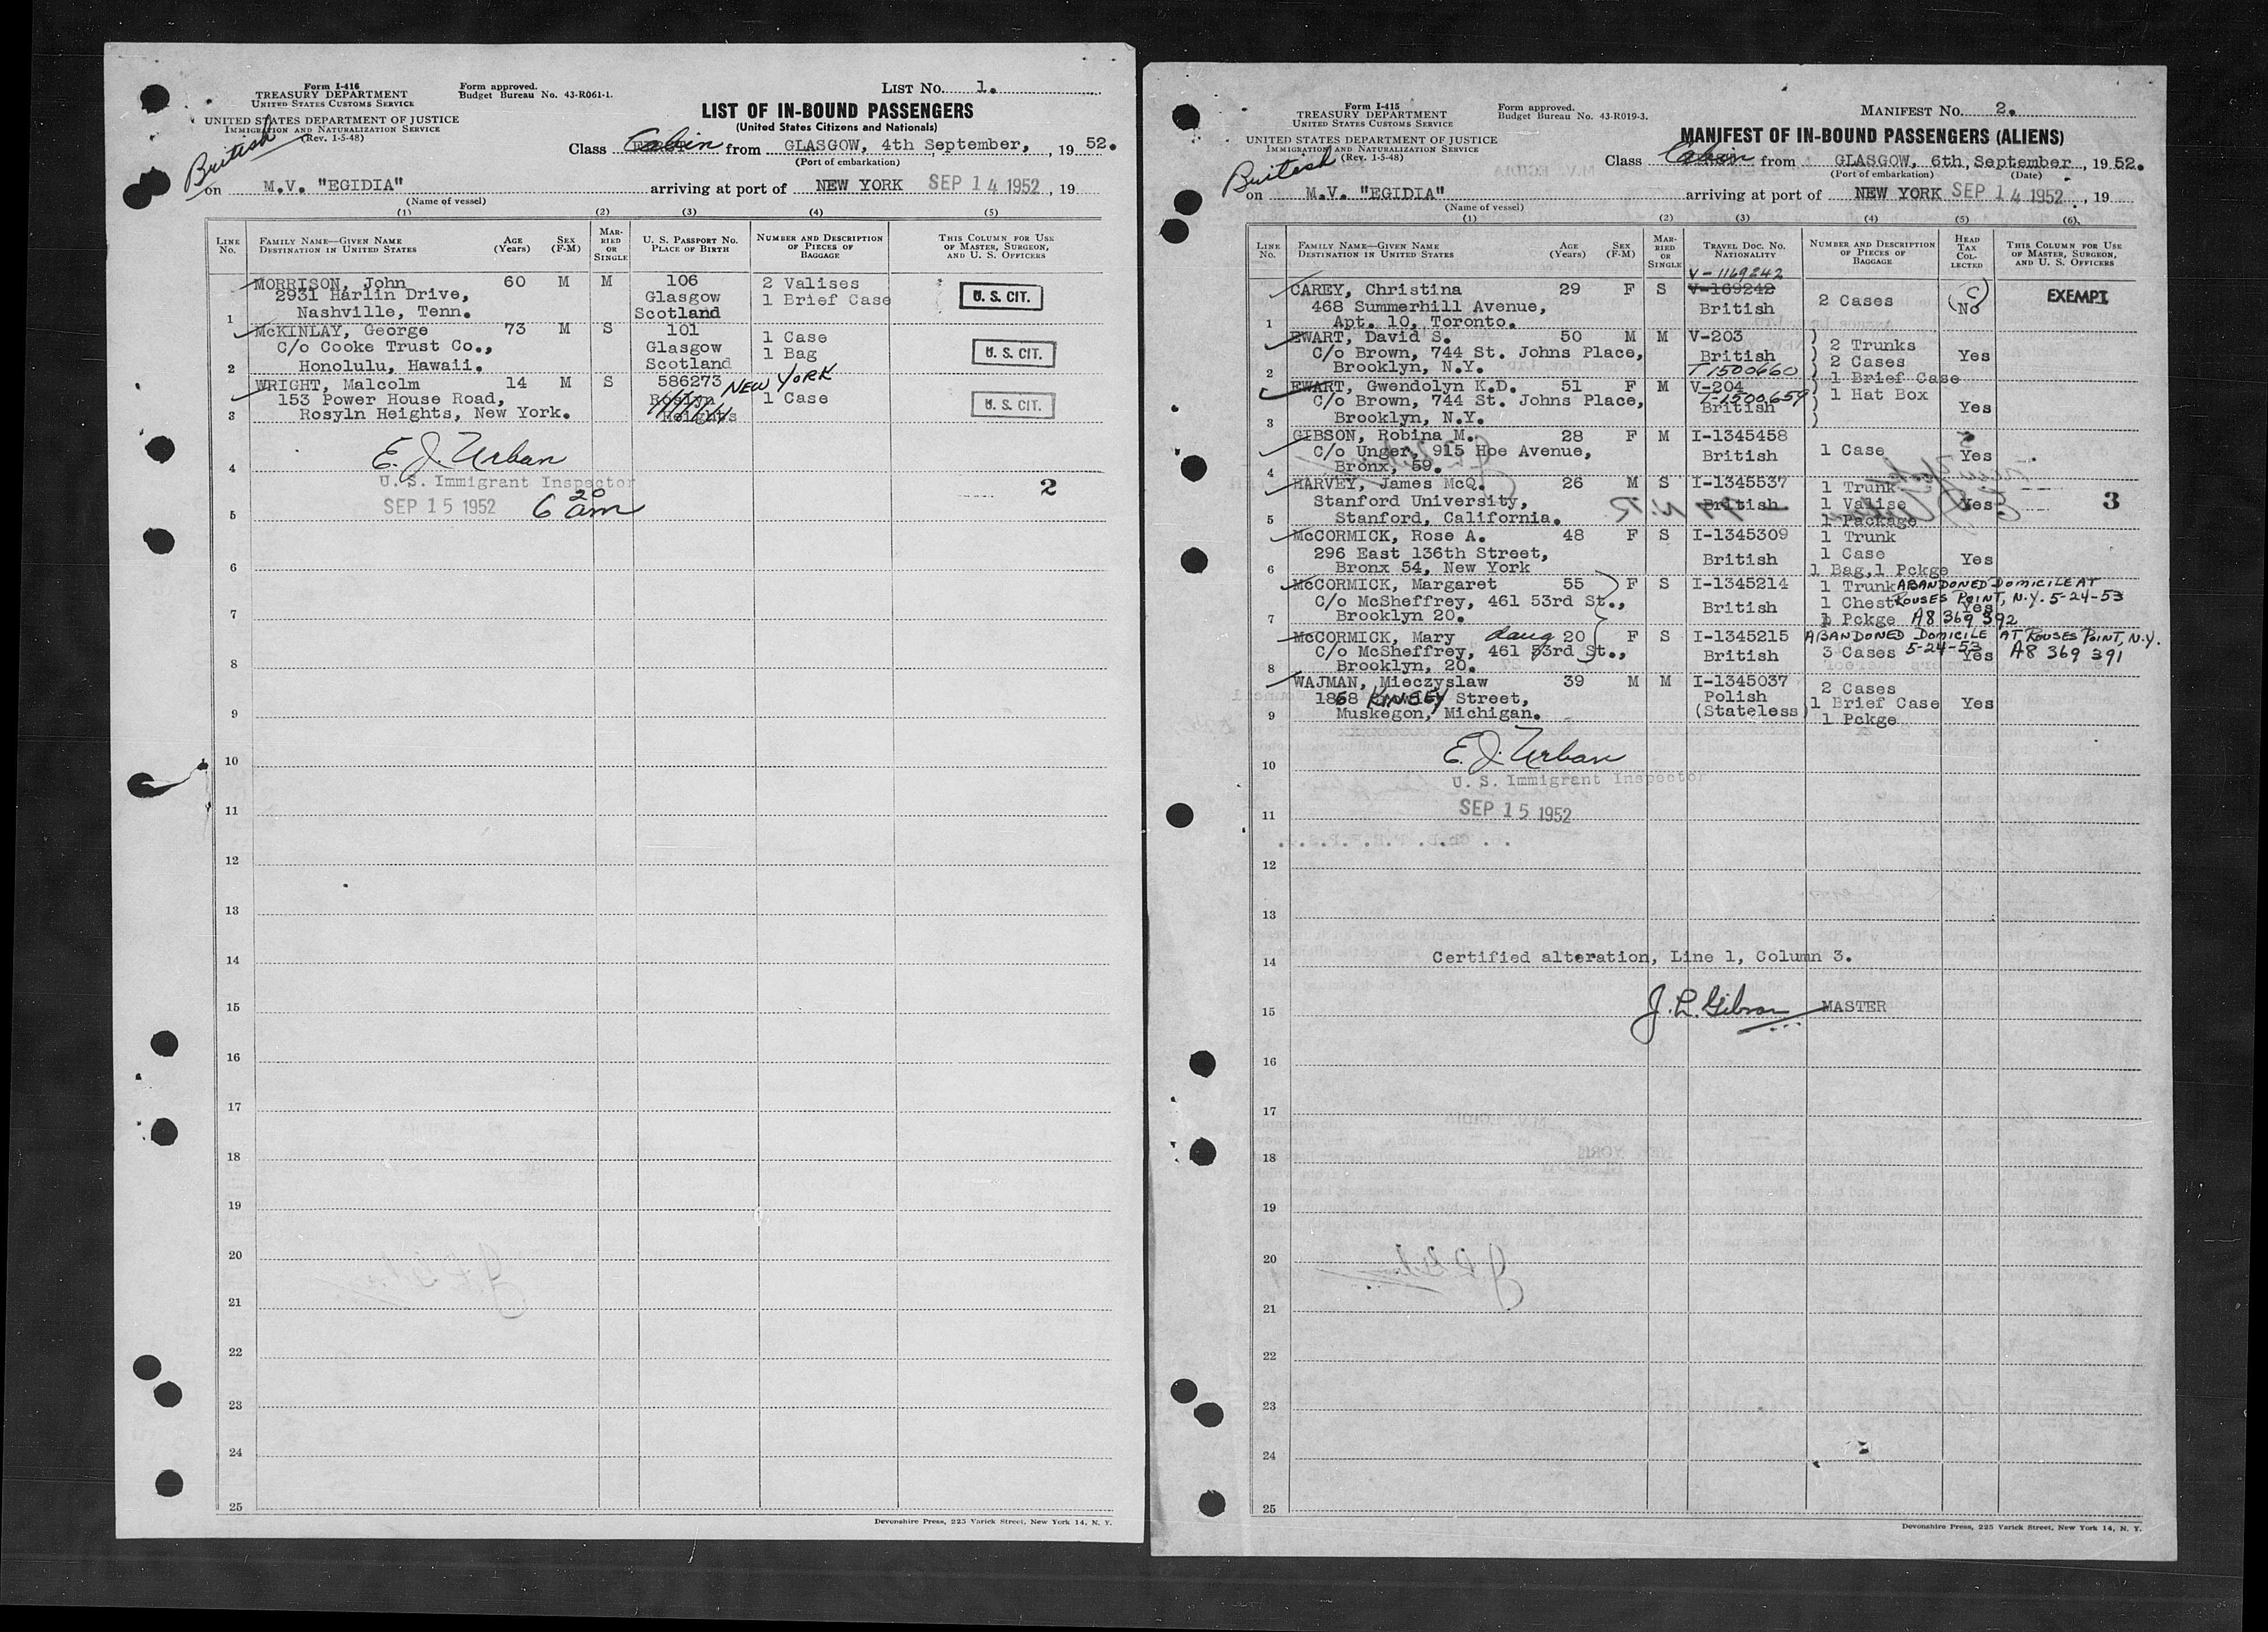 Form I-416
TREASURY DEPARTMENT
UNITED STATES CUSTOMS SERVICE
UNITED STATES DEPARTMENT OF JUSTICE
IMMIGRATION AND NATURALIZATION SERVICE
(Rev. 1-5-48)
Form approved.
Budget Bureau No. 43-R061-1.
LIST No. 1.
LIST OF IN-BOUND PASSENGERS
(United States Citizens and Nationals)
British
Class Cabin from GLASGOW, 4th September, , 19 52.
(Port of embarkation)
on M.V. "EGIDIA" arriving at port of NEW YORK SEP 14 1952 , 19
(Name of vessel)
(1) (2) (3) (4) (5)
LINE No. FAMILY NAME—GIVEN NAME DESTINATION IN UNITED STATES AGE (Years) SEX (F-M) MARRIED OR SINGLE U. S. PASSPORT NO. PLACE OF BIRTH NUMBER AND DESCRIPTION OF PIECES OF BAGGAGE THIS COLUMN FOR USE OF MASTER, SURGEON, AND U. S. OFFICERS
MORRISON, John 60 M M 106 2 Valises
2931 Harlin Drive, Glasgow 1 Brief Case U. S. CIT.
1 Nashville, Tenn. Scotland
McKINLAY, George 73 M S 101 1 Case
C/o Cooke Trust Co., Glasgow 1 Bag U. S. CIT.
2 Honolulu, Hawaii. Scotland
WRIGHT, Malcolm 14 M S 586273 NEW YORK
153 Power House Road, Roslyn 1 Case U. S. CIT.
3 Rosyln Heights, New York. Heights
E. J. Urban
4
U. S. Immigrant Inspector 2
SEP 15 1952 6 20 am
5
6
7
8
9
10
11
12
13
14
15
16
17
18
19
20
21
22
23
24
25
Devonshire Press, 225 Varick Street, New York 14, N. Y.
Form I-415
TREASURY DEPARTMENT
UNITED STATES CUSTOMS SERVICE
UNITED STATES DEPARTMENT OF JUSTICE
IMMIGRATION AND NATURALIZATION SERVICE
(Rev. 1-5-48)
Form approved.
Budget Bureau No. 43-R019-3.
MANIFEST No. 2.
MANIFEST OF IN-BOUND PASSENGERS (ALIENS)
British
Class Cabin from GLASGOW, 6th, September , 19 52.
(Port of embarkation) (Date)
on M.V. "EGIDIA" arriving at port of NEW YORK SEP 14 1952 , 19
(Name of vessel)
(1) (2) (3) (4) (5) (6)
LINE No. FAMILY NAME—GIVEN NAME DESTINATION IN UNITED STATES AGE (Years) SEX (F-M) MARRIED OR SINGLE TRAVEL DOC. NO. NATIONALITY NUMBER AND DESCRIPTION OF PIECES OF BAGGAGE HEAD TAX COLLECTED THIS COLUMN FOR USE OF MASTER, SURGEON, AND U. S. OFFICERS
V-1169242
CAREY, Christina 29 F S V-169242 EXEMPT
468 Summerhill Avenue, British 2 Cases No
1 Apt. 10, Toronto.
EWART, David S. 50 M M V-203 2 Trunks
C/o Brown, 744 St. Johns Place, British 2 Cases Yes
2 Brooklyn, N.Y. T1500660 1 Brief Case
EWART, Gwendolyn K.D. 51 F M V-204 1 Hat Box
C/o Brown, 744 St. Johns Place, T-1500659 British Yes
3 Brooklyn, N.Y.
GIBSON, Robina M. 28 F M I-1345458
C/o Unger, 915 Hoe Avenue, British 1 Case Yes
4 Bronx, 59.
HARVEY, James McQ. 26 M S I-1345537 1 Trunk
Stanford University, British 1 Valise Yes 3
5 Stanford, California. 1 Package
McCORMICK, Rose A. 48 F S I-1345309 1 Trunk
296 East 136th Street, British 1 Case Yes
6 Bronx 54, New York 1 Bag,1 Pckge
McCORMICK, Margaret 55 F S I-1345214 1 Trunk ABANDONED DOMICILE AT
C/o McSheffrey, 461 53rd St., British 1 Chest Yes ROUSES POINT, N.Y. 5-24-53
7 Brooklyn 20. 1 Pckge A8 369 392
McCORMICK, Mary daug 20 F S I-1345215 ABANDONED DOMICILE AT ROUSES POINT, N.Y.
C/o McSheffrey, 461 53rd St., British 3 Cases 5-24-53 Yes A8 369 391
8 Brooklyn, 20.
WAJMAN, Mieczyslaw 39 M M I-1345037 2 Cases
1868 KINSEY Street, Polish 1 Brief Case Yes
9 Muskegon, Michigan. (Stateless) 1 Pckge
E. J. Urban
10
U. S. Immigrant Inspector
SEP 15 1952
11
12
13
Certified alteration, Line 1, Column 3.
14
J. L. Gibson MASTER
15
16
17
18
19
20
21
22
23
24
25
Devonshire Press, 225 Varick Street, New York 14, N. Y.